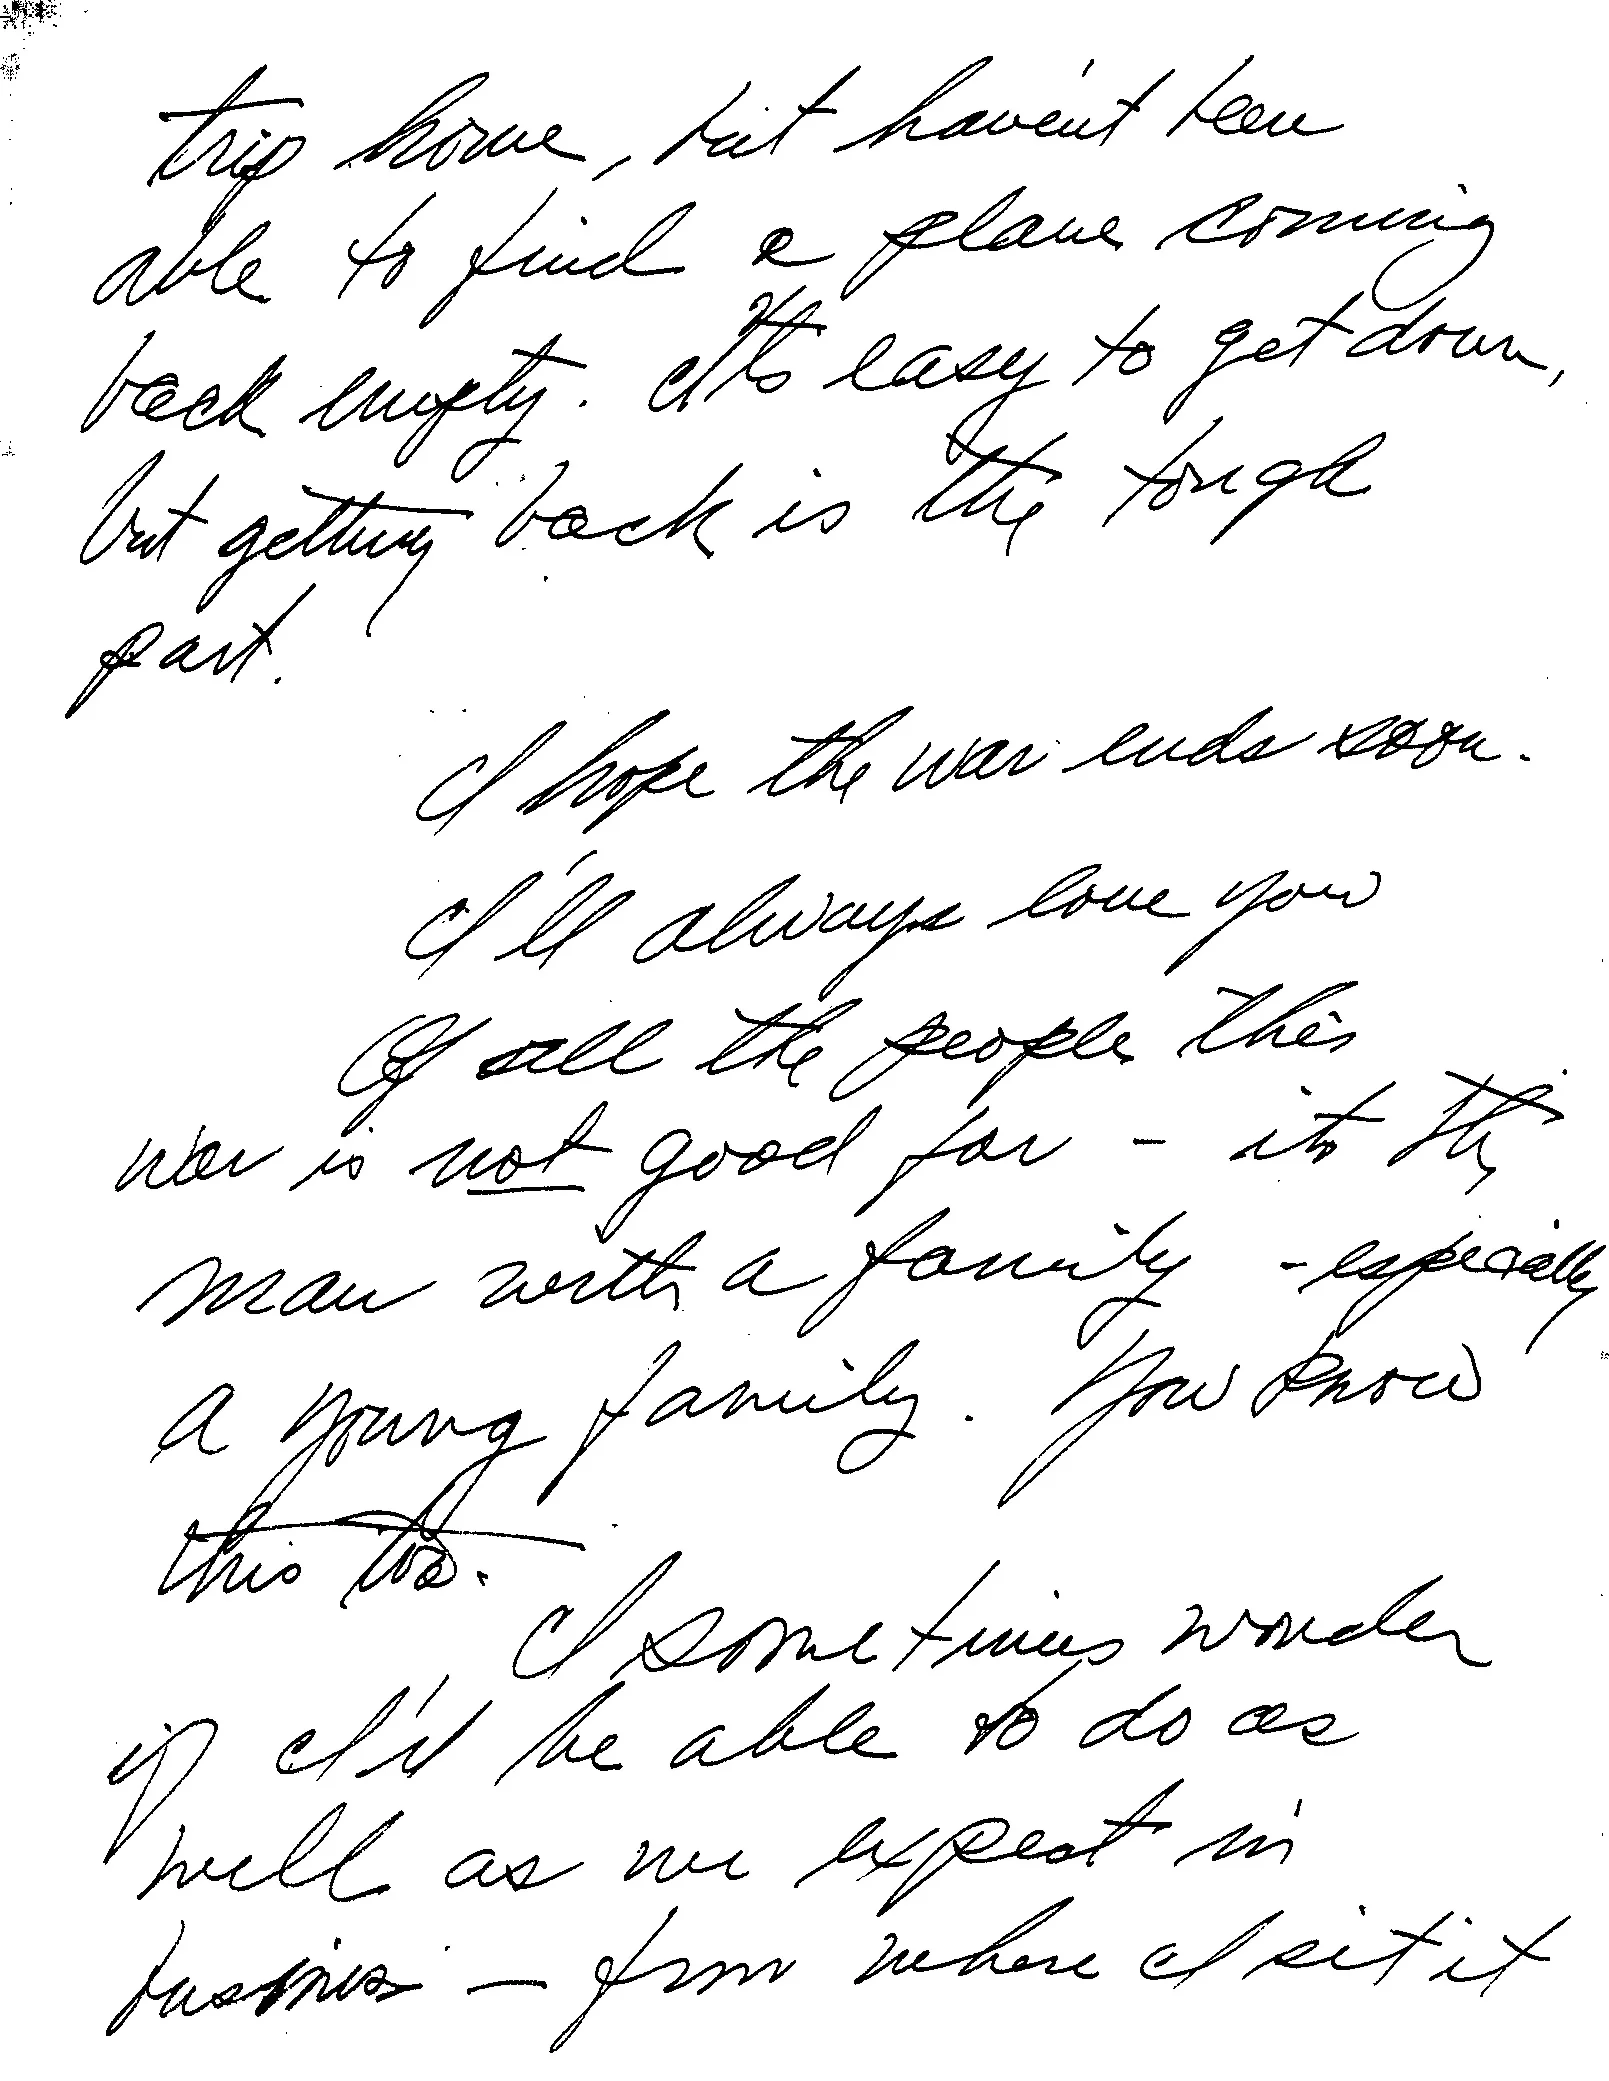 trip home, but haven't been
able to find a plane coming
back empty. It's easy to get down,
but getting back is the tough
part.
I hope the war ends soon.
I'll always love you
Of all the people this
war is not good for - its the
man with a family - especially
a young family. You know
this too.
I sometimes wonder
if I'd be able to do as
well as we expect in
business - from where I sit it